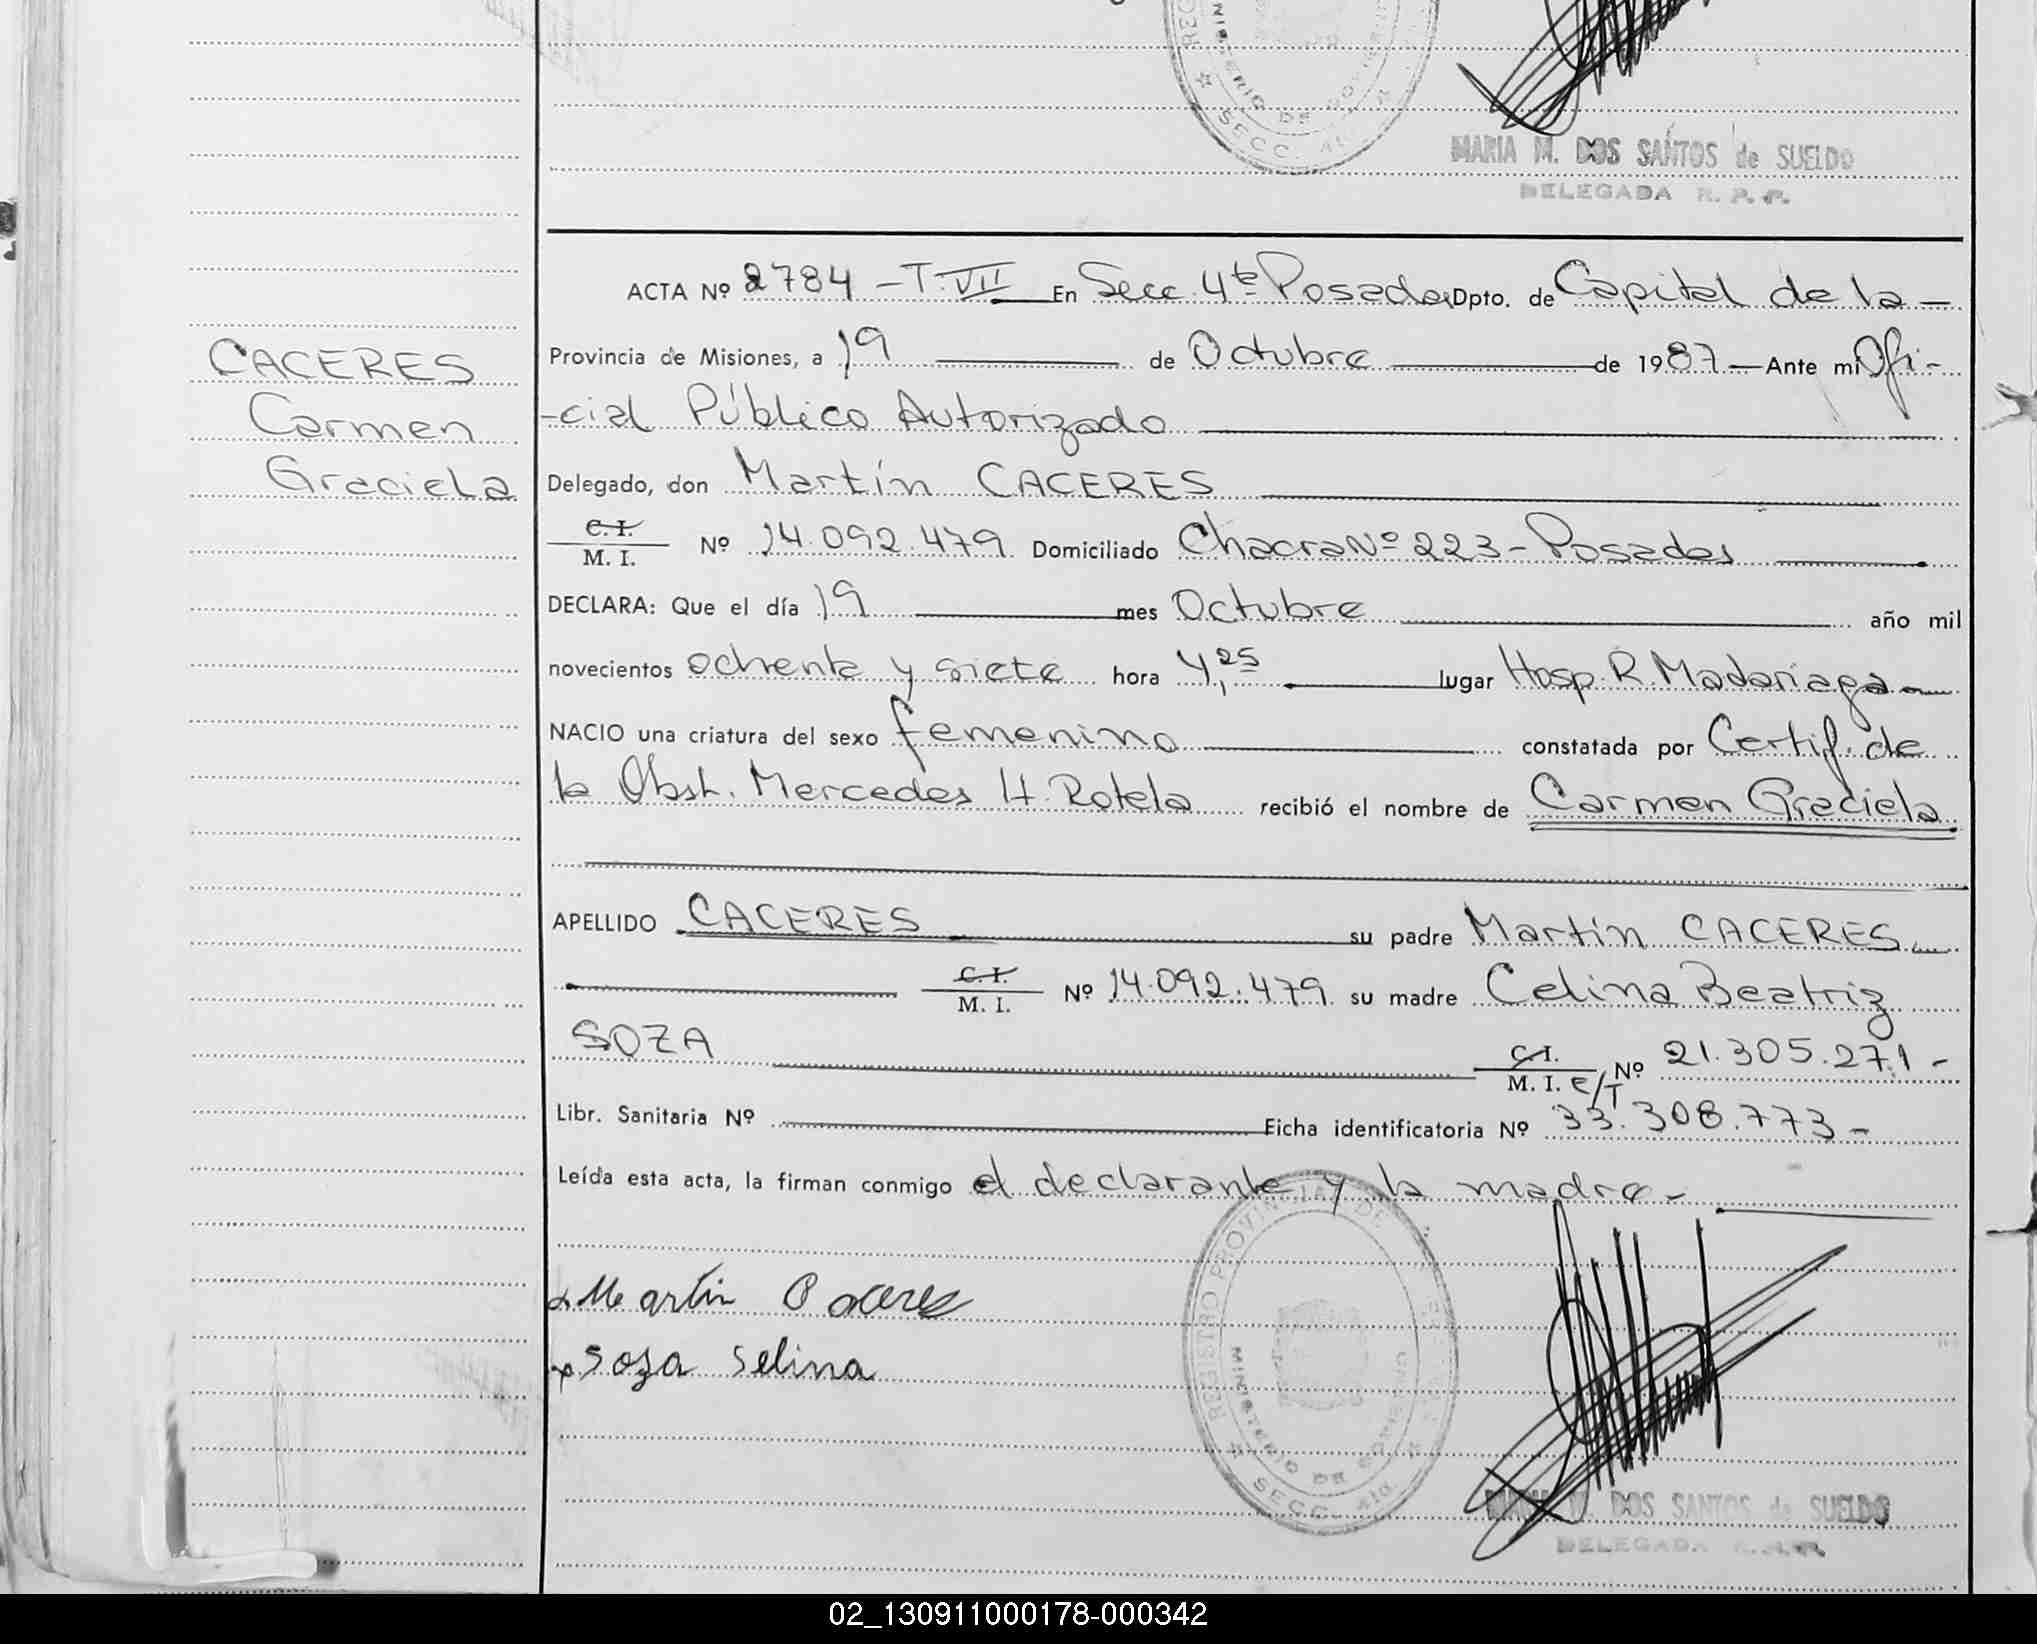 MINISTERIO DE GOBIERNO
SECC. 4ta.
MARIA M. DOS SANTOS de SUELDO
DELEGADA R. P. P.
ACTA Nº 2784 - T. VII En Secc. 4ta Posadas Dpto. de Capital de la -
Provincia de Misiones, a 19 de Octubre de 1987 - Ante mi Ofi-
-cial Público Autorizado
CACERES
Carmen
Graciela
Delegado, don Martín CACERES
C. I.
M. I. Nº 14.092.479 Domiciliado Chacra Nº 223 - Posadas
DECLARA: Que el día 19 mes Octubre año mil
novecientos ochenta y siete hora 4,25 lugar Hosp. R. Madariaga
NACIO una criatura del sexo femenino constatada por Certif. de
la Obst. Mercedes H. Rotela recibió el nombre de Carmen Graciela
APELLIDO CACERES su padre Martín CACERES
C. I.
M. I. Nº 14.092.479 su madre Celina Beatriz
SOZA C. I.
M. I. E/T Nº 21.305.271 -
Libr. Sanitaria Nº Ficha identificatoria Nº 33.308.773 -
Leída esta acta, la firman conmigo el declarante y la madre -
Martin Caceres
Soza Selina
REGISTRO PROVINCIAL DE
MINISTERIO DE GOBIERNO
SECC. 4ta.
MARIA M. DOS SANTOS de SUELDO
DELEGADA
02_130911000178-000342